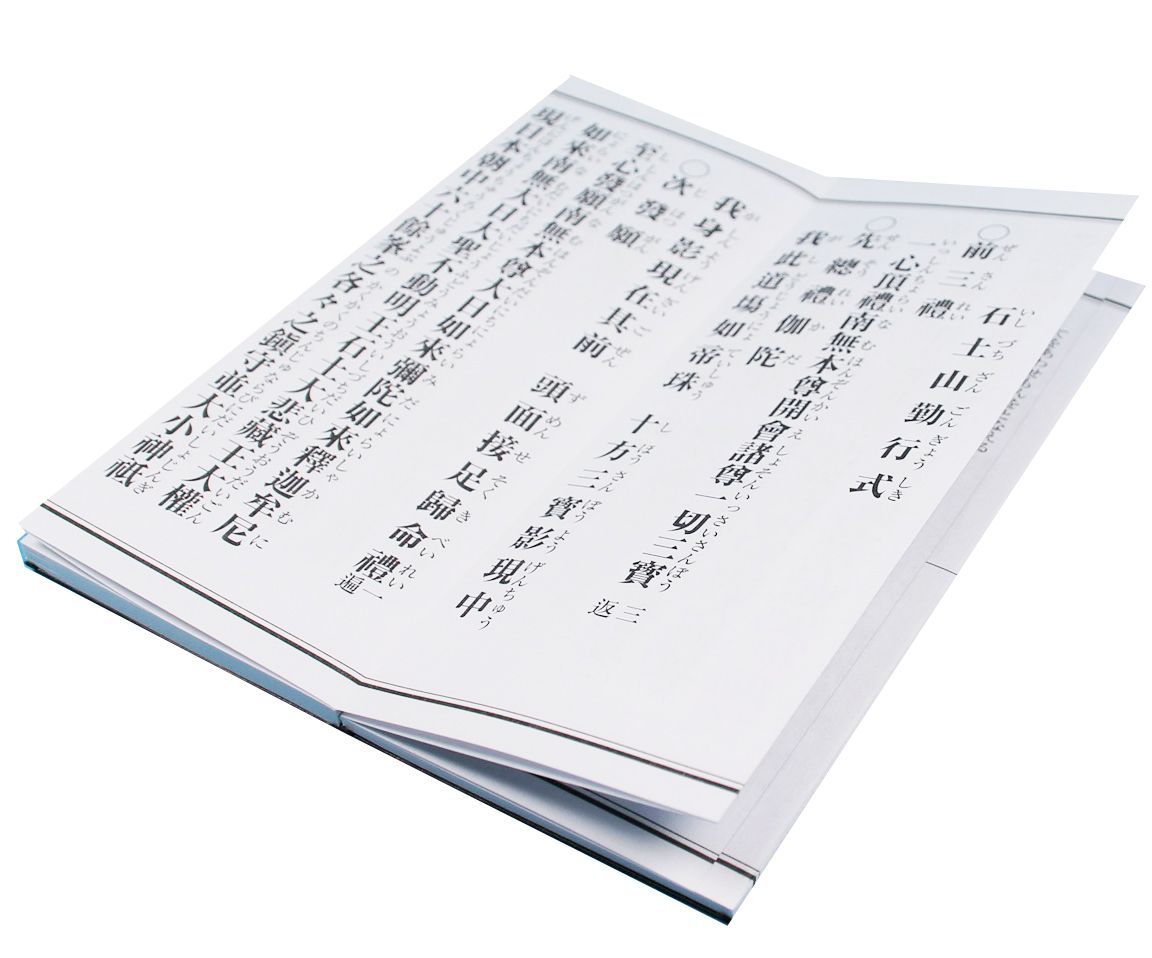 石土山勤行式
○前三禮
一心頂禮南無本尊開會諸尊一切三寶 三返
○先總禮伽陀
我此道場如帝珠 十方三寶影現中
我身影現在其前 頭面接足歸命禮 一遍
○次發願
至心發願南無本尊大日如來彌陀如來釋迦牟尼
如來南無大日大聖不動明王石土大悲藏王大權
現日本朝中六十餘峯之各々之鎭守並大小神祇